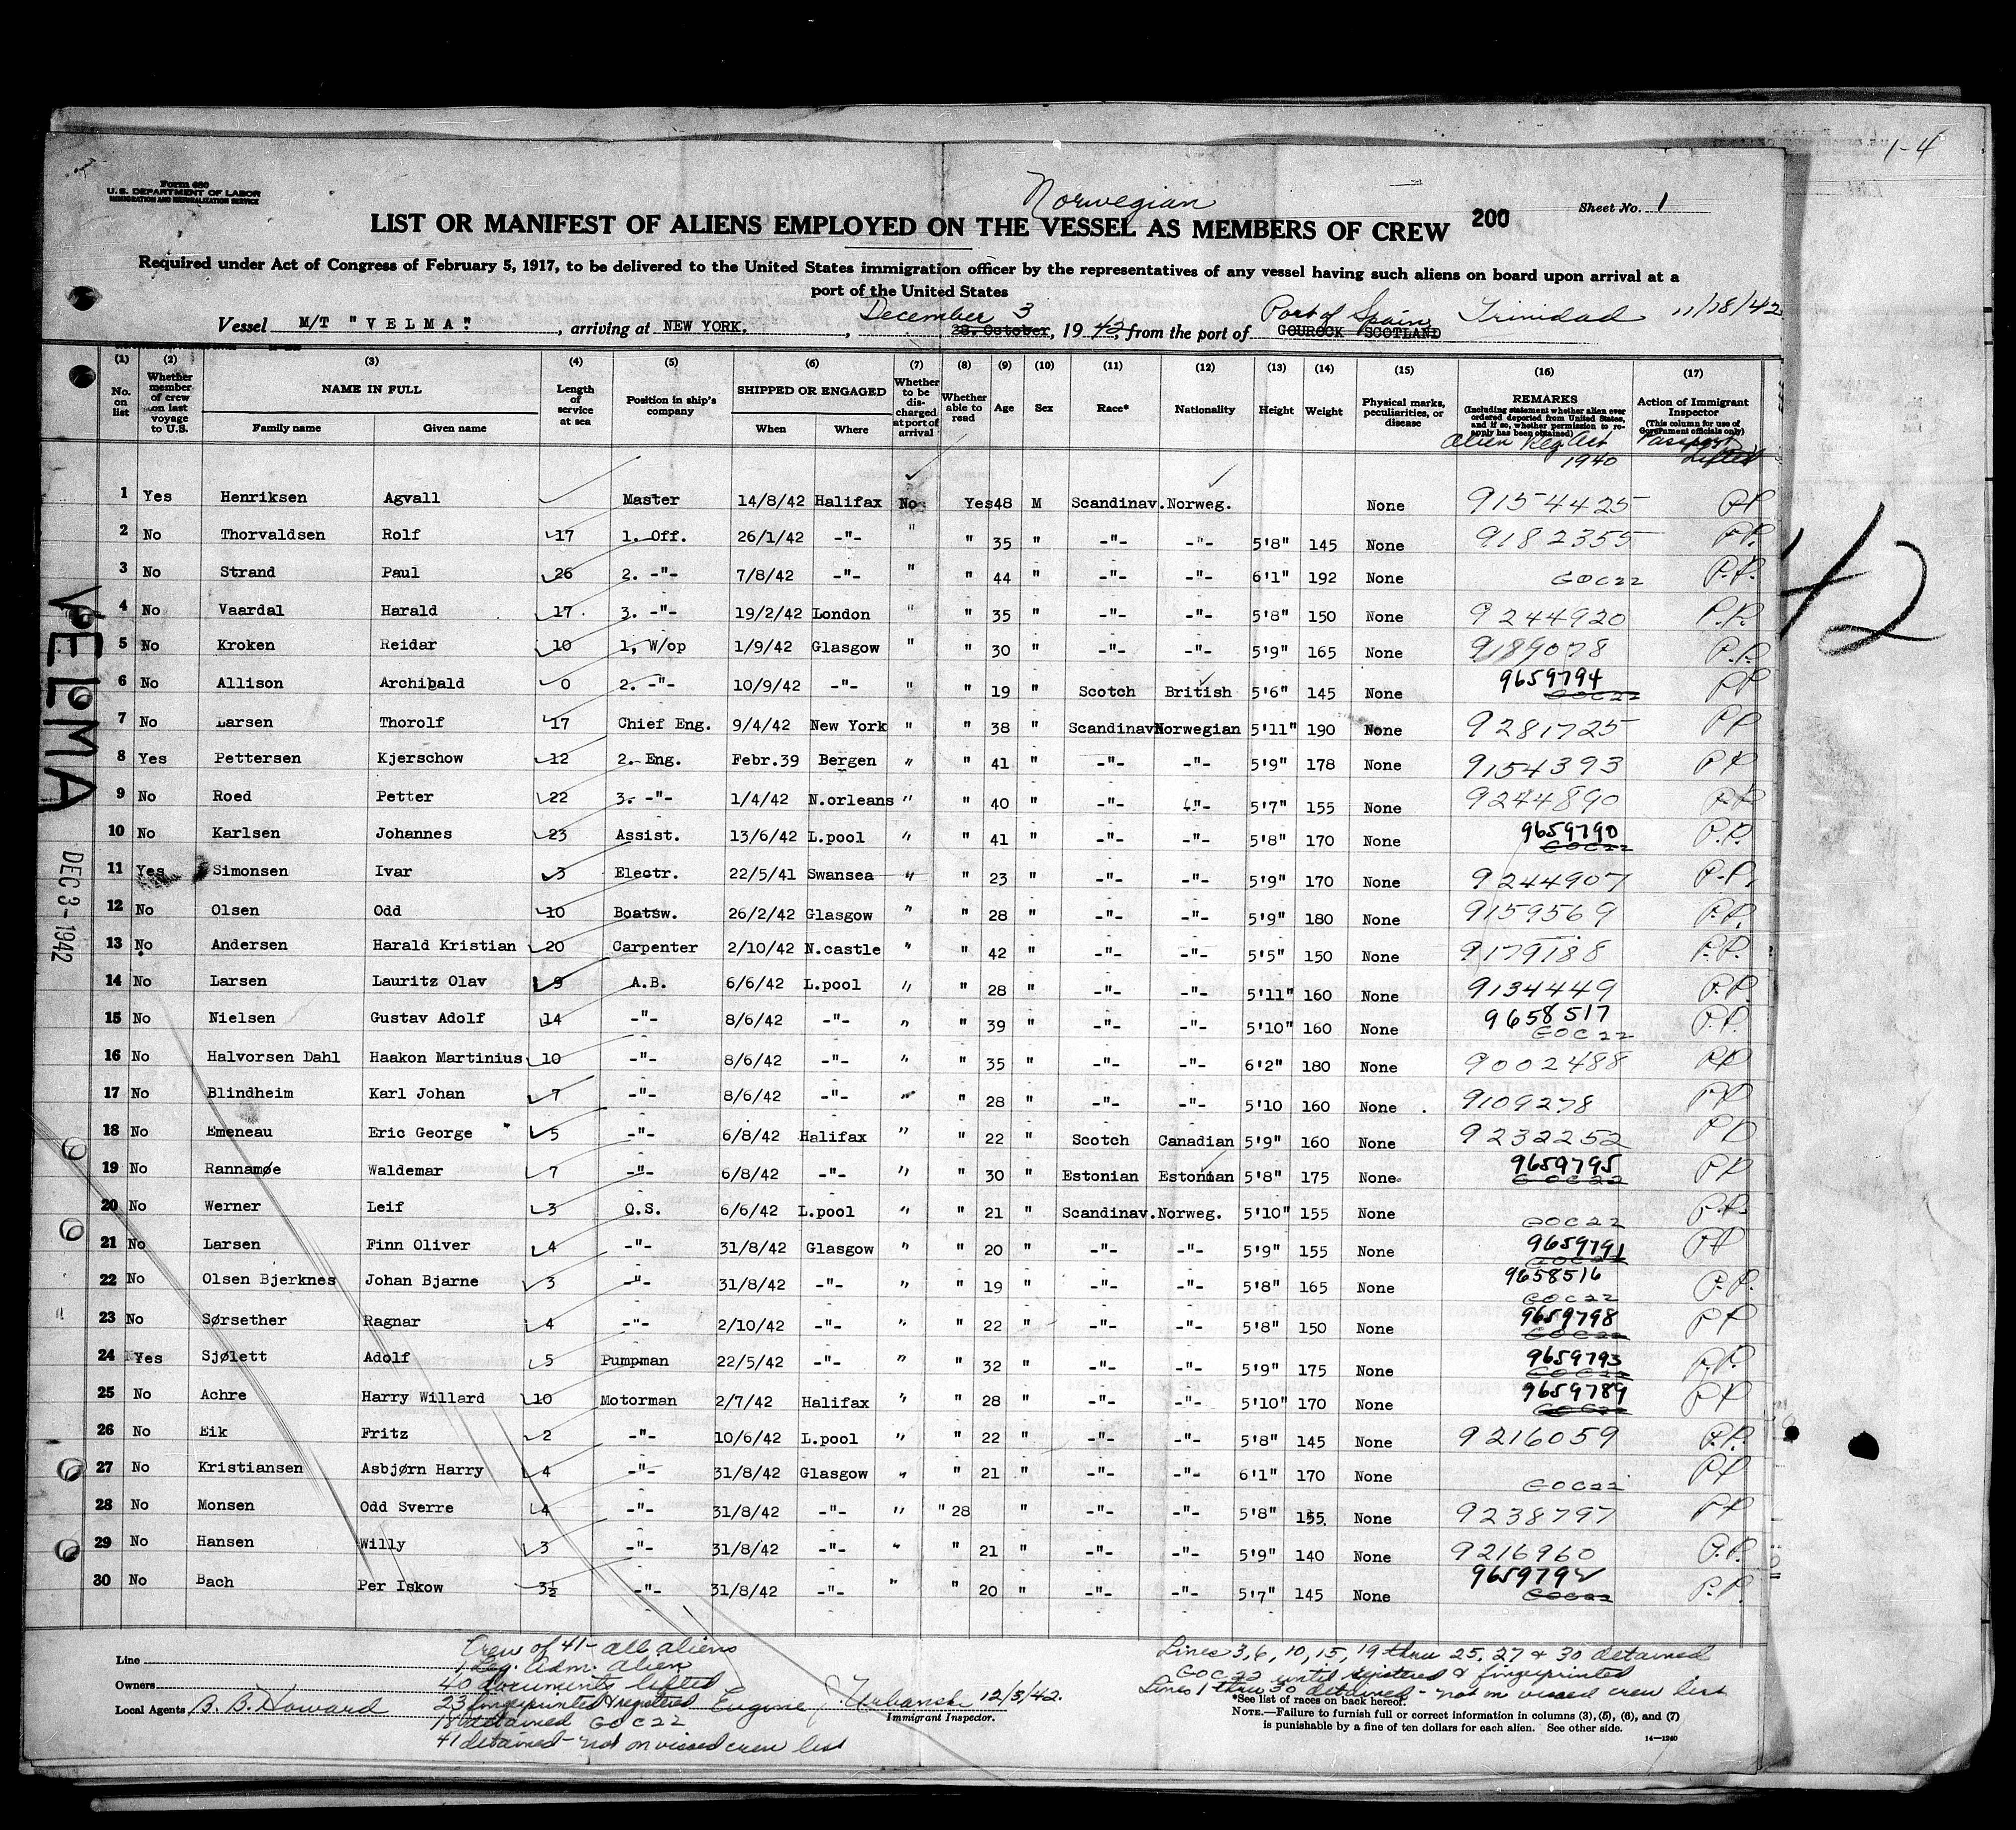 1-4
Form 680
U.S. DEPARTMENT OF LABOR
IMMIGRATION AND NATURALIZATION SERVICE
Norwegian
Sheet No. 1
LIST OR MANIFEST OF ALIENS EMPLOYED ON THE VESSEL AS MEMBERS OF CREW 200
Required under Act of Congress of February 5, 1917, to be delivered to the United States immigration officer by the representatives of any vessel having such aliens on board upon arrival at a
port of the United States
December 3 Port of Spain Trinidad 11/18/42
Vessel M/T "VELMA", arriving at NEW YORK., 28. October, 1942, from the port of GOUROCK /SCOTLAND
(1) (2) (3) (4) (5) (6) (7) (8) (9) (10) (11) (12) (13) (14) (15) (16) (17)
No. on list | Whether member of crew on last voyage to U.S. | NAME IN FULL | Family name | Given name | Length of service at sea | Position in ship's company | SHIPPED OR ENGAGED | When | Where | Whether to be discharged at port of arrival | Whether able to read | Age | Sex | Race* | Nationality | Height | Weight | Physical marks, peculiarities, or disease | REMARKS (Including statement whether alien ever ordered deported from United States, and if so, whether permission to reapply has been obtained) | Action of Immigrant Inspector (This column for use of Government officials only)
Alien Reg. Act 1940 Passport Lifted
1 Yes Henriksen Agvall Master 14/8/42 Halifax No Yes 48 M Scandinav. Norweg. None 9154425 PP
2 No Thorvaldsen Rolf 17 1. Off. 26/1/42 -"- " " 35 " -"- -"- 5'8" 145 None 9182355 P.P.
3 No Strand Paul 26 2. -"- 7/8/42 -"- " " 44 " -"- -"- 6'1" 192 None GOC22 P.P.
4 No Vaardal Harald 17 3. -"- 19/2/42 London " " 35 " -"- -"- 5'8" 150 None 9244920 P.P.
5 No Kroken Reidar 10 1, W/op 1/9/42 Glasgow " " 30 " -"- -"- 5'9" 165 None 9189078 P.P.
6 No Allison Archibald 0 2. -"- 10/9/42 -"- " " 19 " Scotch British 5'6" 145 None 9659794 GOC22 PP
7 No Larsen Thorolf 17 Chief Eng. 9/4/42 New York " " 38 " Scandinav Norwegian 5'11" 190 None 9281725 PP
8 Yes Pettersen Kjerschow 12 2. Eng. Febr.39 Bergen " " 41 " -"- -"- 5'9" 178 None 9154393 PP
9 No Roed Petter 22 3. -"- 1/4/42 N.orleans " " 40 " -"- -"- 5'7" 155 None 9244890 PP
10 No Karlsen Johannes 23 Assist. 13/6/42 L.pool " " 41 " -"- -"- 5'8" 170 None 9659790 GOC22 P.P.
11 Yes Simonsen Ivar 3 Electr. 22/5/41 Swansea " " 23 " -"- -"- 5'9" 170 None 9244907 P.P.
12 No Olsen Odd 10 Boatsw. 26/2/42 Glasgow " " 28 " -"- -"- 5'9" 180 None 9159569 P.P.
13 No Andersen Harald Kristian 20 Carpenter 2/10/42 N.castle " " 42 " -"- -"- 5'5" 150 None 9179188 P.P.
14 No Larsen Lauritz Olav 9 A.B. 6/6/42 L.pool " " 28 " -"- -"- 5'11" 160 None 9134449 P.P.
15 No Nielsen Gustav Adolf 14 -"- 8/6/42 -"- " " 39 " -"- -"- 5'10" 160 None 9658517 GOC22 P.P.
16 No Halvorsen Dahl Haakon Martinius 10 -"- 8/6/42 -"- " " 35 " -"- -"- 6'2" 180 None 9002488 PP
17 No Blindheim Karl Johan 7 -"- 8/6/42 -"- " " 28 " -"- -"- 5'10 160 None 9109278 PP
18 No Emeneau Eric George 5 -"- 6/8/42 Halifax " " 22 " Scotch Canadian 5'9" 160 None 9232252 PP
19 No Rannamøe Waldemar 7 -"- 6/8/42 -"- " " 30 " Estonian Estonian 5'8" 175 None 9659795 GOC22 PP
20 No Werner Leif 3 O.S. 6/6/42 L.pool " " 21 " Scandinav. Norweg. 5'10" 155 None GOC22 P.P.
21 No Larsen Finn Oliver 4 -"- 31/8/42 Glasgow " " 20 " -"- -"- 5'9" 155 None 9659791 GOC22 PP
22 No Olsen Bjerknes Johan Bjarne 3 -"- 31/8/42 -"- " " 19 " -"- -"- 5'8" 165 None 9658516 GOC22 P.P.
23 No Sørsether Ragnar 4 -"- 2/10/42 -"- " " 22 " -"- -"- 5'8" 150 None 9659798 GOC22 PP
24 Yes Sjølett Adolf 5 Pumpman 22/5/42 -"- " " 32 " -"- -"- 5'9" 175 None 9659793 GOC22 P.P.
25 No Achre Harry Willard 10 Motorman 2/7/42 Halifax " " 28 " -"- -"- 5'10" 170 None 9659789 GOC22 PP
26 No Eik Fritz 2 -"- 10/6/42 L.pool " " 22 " -"- -"- 5'8" 145 None 9216059 P.P.
27 No Kristiansen Asbjørn Harry 4 -"- 31/8/42 Glasgow " " 21 " -"- -"- 6'1" 170 None GOC22 PP
28 No Monsen Odd Sverre 4 -"- 31/8/42 -"- " " 28 " -"- -"- 5'8" 155 None 9238797 PP
29 No Hansen Willy 3 -"- 31/8/42 -"- " " 21 " -"- -"- 5'9" 140 None 9216960 P.P.
30 No Bach Per Iskow 3½ -"- 31/8/42 -"- " " 20 " -"- -"- 5'7" 145 None 9659792 GOC22 P.P.
VELMA
DEC 3-1942
42
Line
Owners
Local Agents B. B. Howard
Crew of 41 - all aliens
1 Leg. Adm. Alien
40 documents lifted
23 fingerprinted & registered
18 detained GOC22
41 detained - not on vissed crew list
Eugene J. Urbanski 12/3/42.
Immigrant Inspector.
Lines 3, 6, 10, 15, 19 thru 25, 27 & 30 detained
GOC22 until registered & fingerprinted
Lines 1 thru 30 detained - not on vissed crew list
*See list of races on back hereof.
NOTE.—Failure to furnish full or correct information in columns (3), (5), (6), and (7)
is punishable by a fine of ten dollars for each alien. See other side.
14—1240